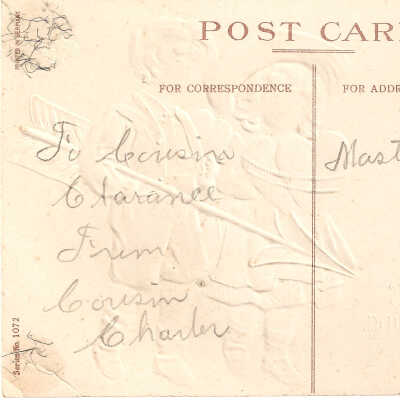 PRINTED IN GERMANY
POST CAR
FOR CORRESPONDENCE
FOR ADDR
To Cousin
Clarance
From
Cousin
Charles
Mast
Series No. 1072